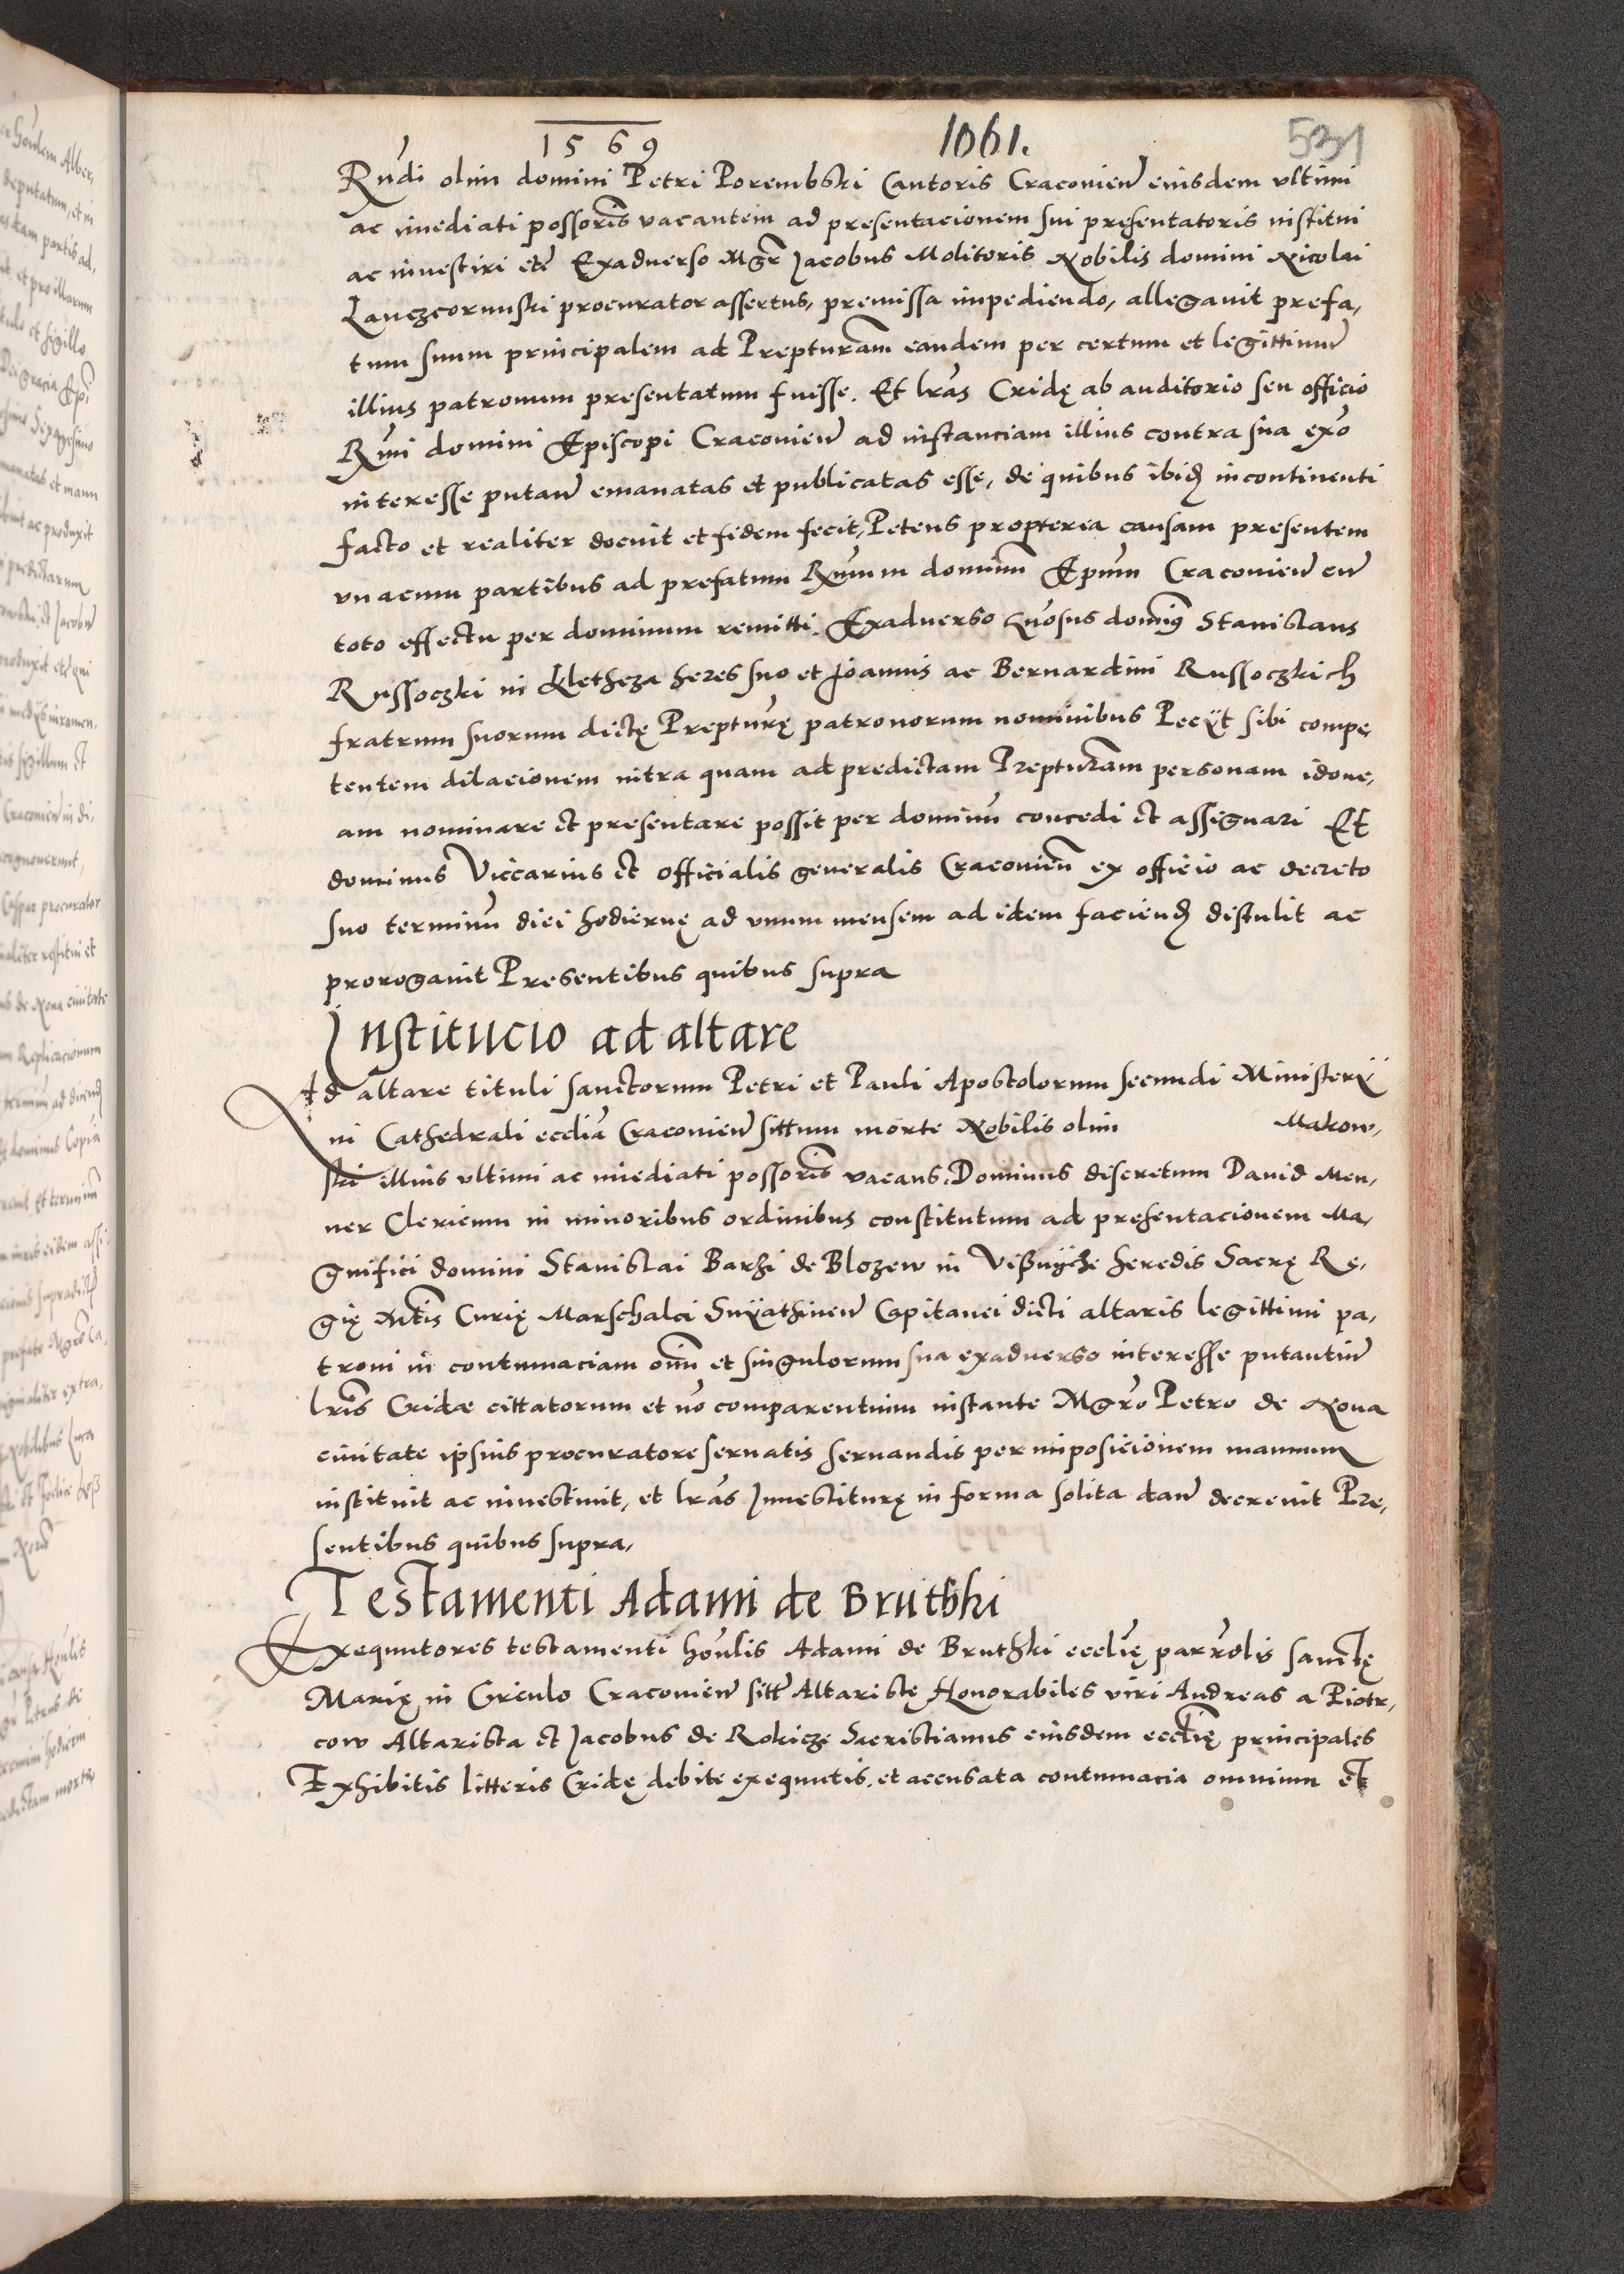 1569
1061.
531
Rndi olim domini Petri Porembski Cantoris Cracovien eiusdem vltimi
ac imediati possoris vacantem ad presentacionem sui presentatoris institui
ac inuestiri etc Exaduerso Mgr Jacobus Molitoris Nobilis domini Nicolai
Lanczcorunski procurator assertus, premissa impediendo, allegauit prefa,
tum suum principalem ad Prepturam eandem per certum et legittimum
illius patronum presentatum fuisse. Et lras Cridę ab auditorio seu officio
Rmi domini Episcopi Cracovien ad instanciam illius contra sua exo
interesse putan emanatas et publicatas esse, de quibus ibid incontinenti
facto et realiter docuit et fidem fecit, Petens propterea causam presentem
vnacum partibus ad prefatum Rmum dominum Epum Cracovien cum
toto effectu per dominum remitti. Exaduerso Gnosus dominus Stanislaus
Russoczki in Kletheza heres suo et Joannis ac Bernardini Russoczkich
fratrum suorum dictę Prepturę patronorum nominibus Peciit sibi compe,
tentem dilacionem intra quam ad predictam Prepturam personam idone,
am nominare et presentare possit per dominum concedi et assignari Et
dominus Viccarius et officialis generalis Cracovien ex officio ac decreto
suo terminum diei hodiernę ad vnum mensem ad idem faciend distulit ac
prorogauit Presentibus quibus supra
Institucio ad altare
Ad altare tituli sanctorum Petri et Pauli Apostolorum secundi Ministerii
in Cathedrali ecclia Cracovien sittum morte Nobilis olim Makow,
ski illius vltimi ac imediati possoris vacans. Dominus discretum Dauid Men,
ner Clericum in minoribus ordinibus constitutum ad presentacionem Ma,
gnifici domini Stanislai Barzi de Blozew in Vißnyche heredis Sacrę Re,
gię Mtis Curię Marschalci Snyathinen Capitanei dicti altaris legittimi pa,
troni in contumaciam oim et singulorum sua exaduerso interesse putantium
lris Cridæ cittatorum et no comparentium instante Mgro Petro de Noua
ciuitate ipsius procuratore seruatis seruandis per imposicionem manuum
instituit ac inuestiuit, et lras Inuestiturę in forma solita dan decreuit Pre,
sentibus quibus supra,
Testamenti Adami de Bruthki
Exequutores testamenti honlis Adami de Bruthki ecclię parrolis sanctę
Marię in Circulo Cracovien sitt Altaristę Honorabiles viri Andreas a Piotr,
cow Altarista et Jacobus de Rokicze Sacristianus eiusdem ecclię principales
Exhibitis litteris Cridę debite exequutis. et accusata contumacia omnium et